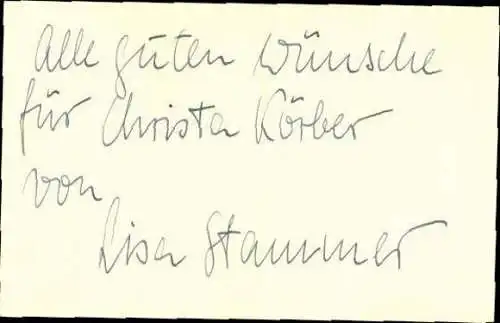 Alle guten Wünsche
für Christa Körber
von
Lisa Stammer